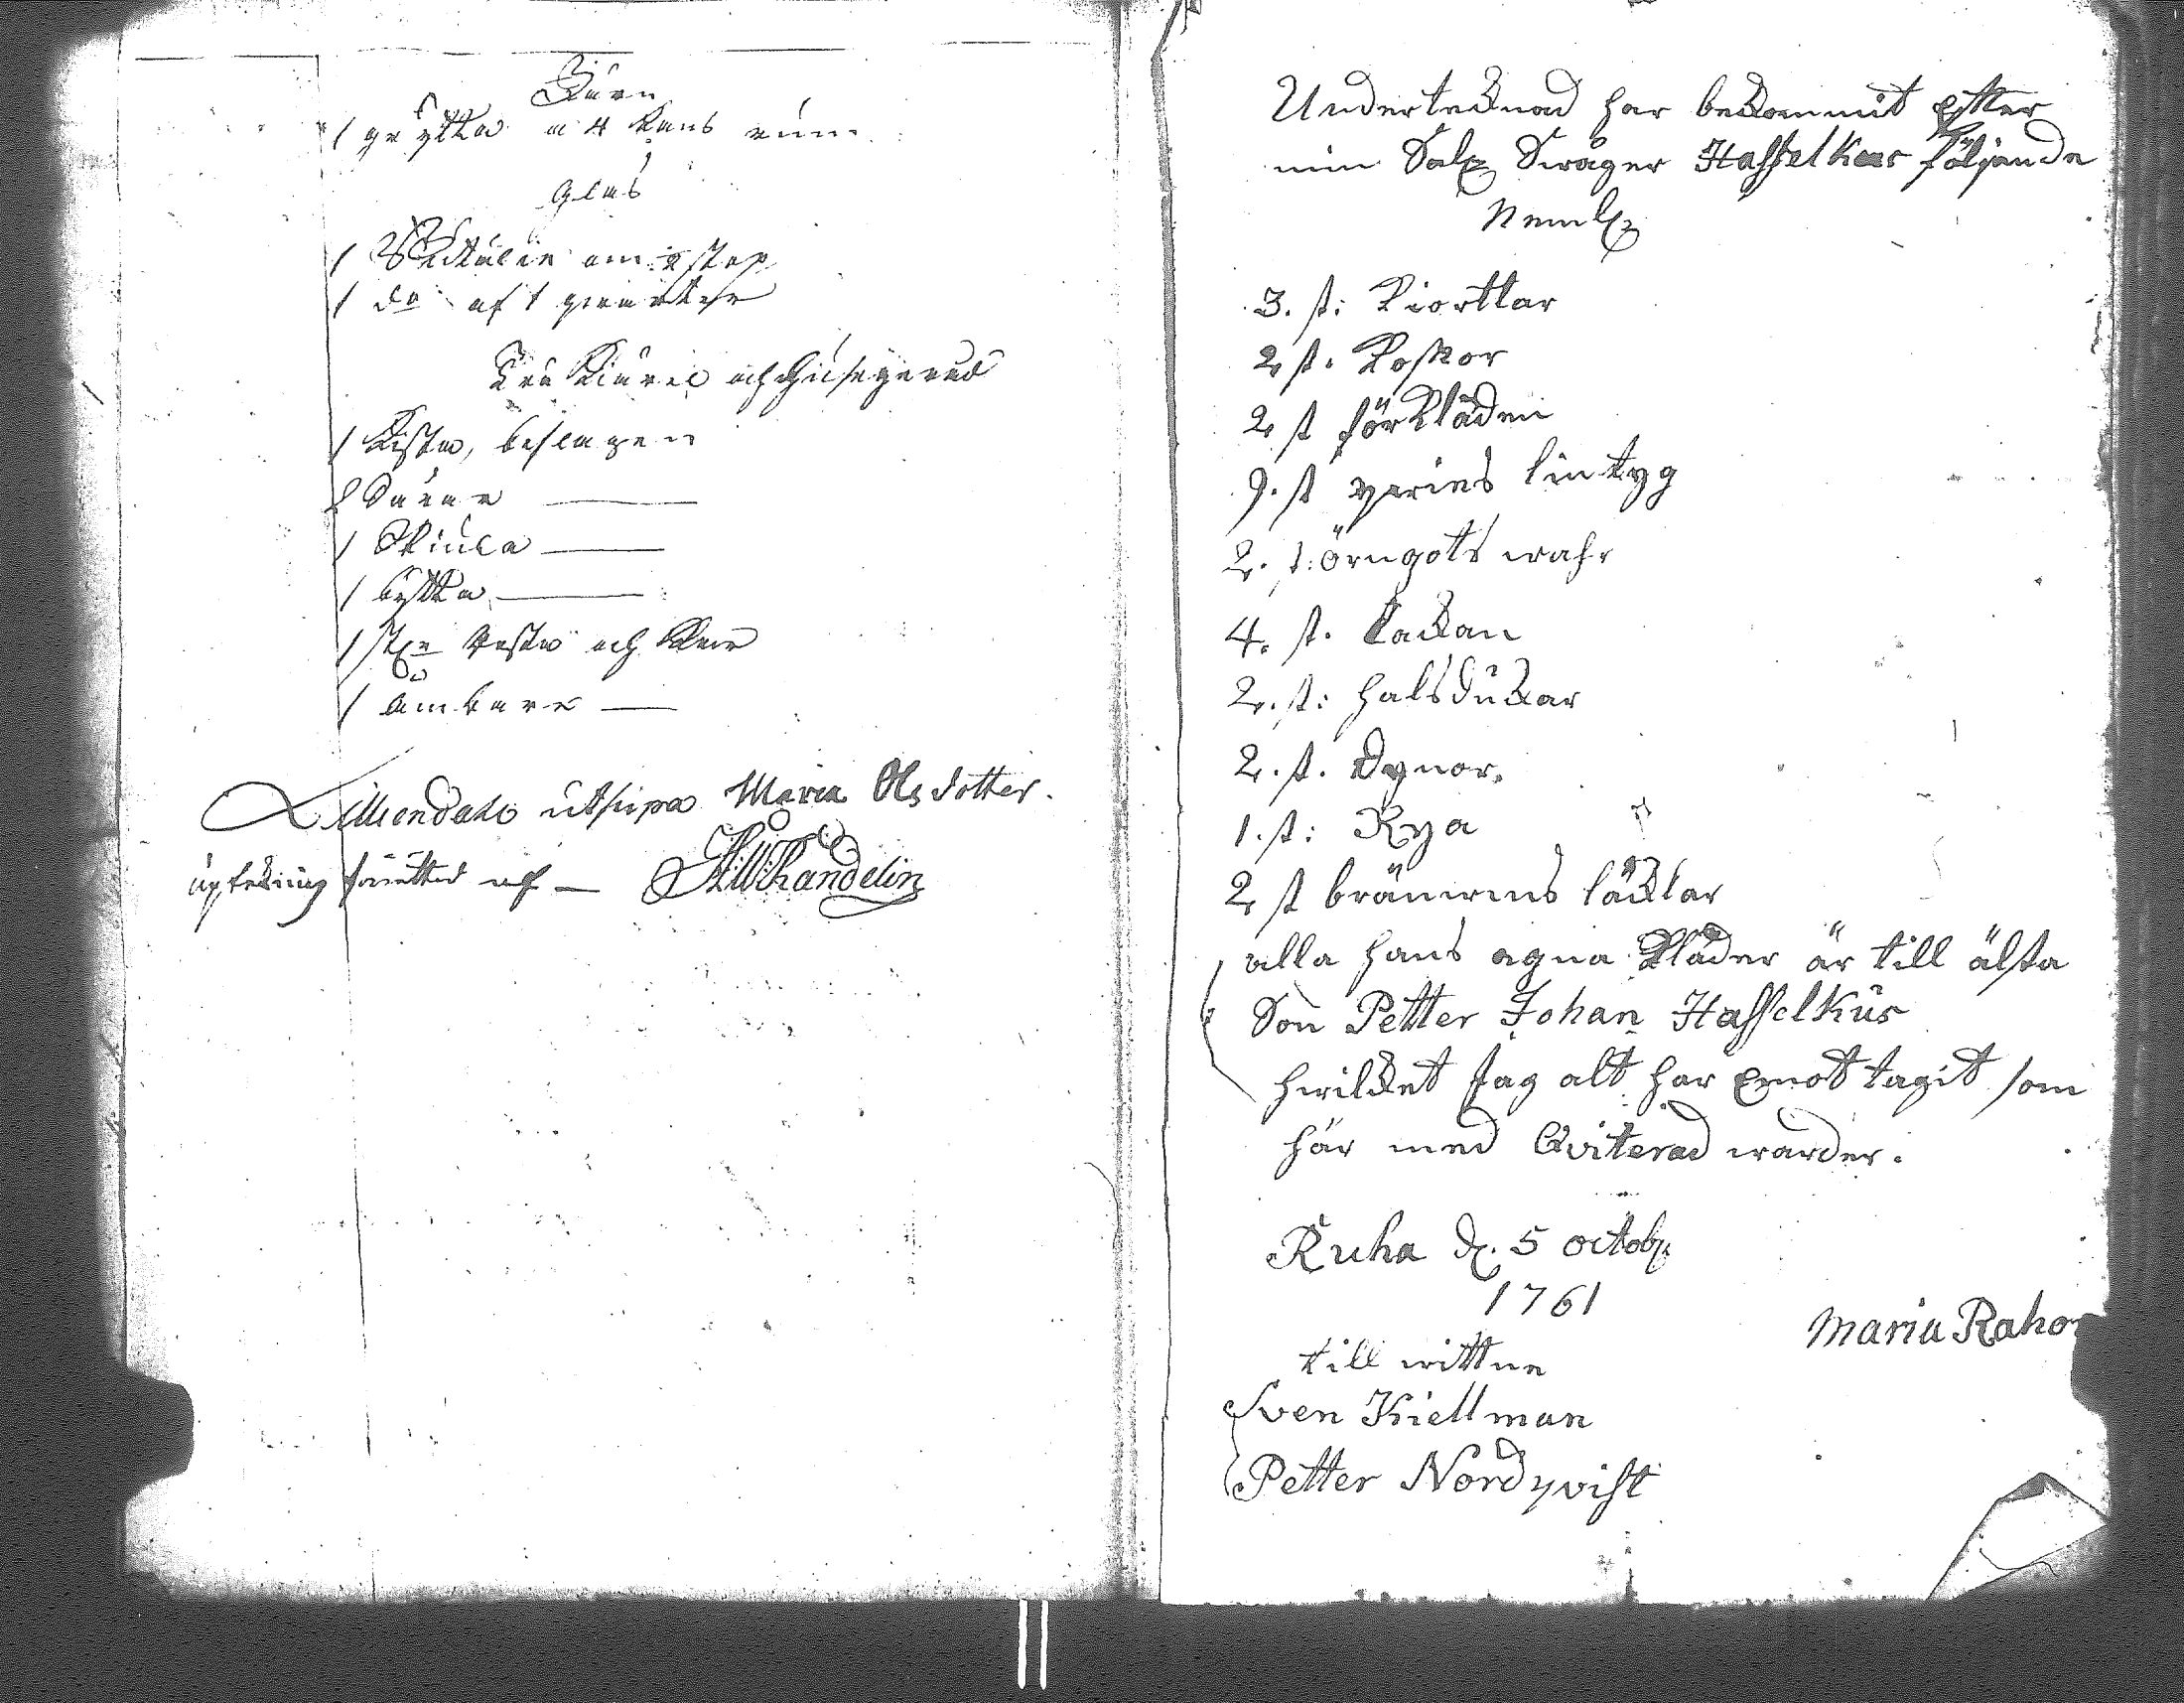 Järn
1 grytta a 4 kans rum
Glas
1 Butelie om 1 stop
1 do af 1 qwarter
Trä Kiärel och Husgeråd
1 Kista, beslagen
2 Såaar
1 Skiula
1 bytta
1 st och
1 ämbare
Lilliendahl utsupra Maria Ols dotter.
uptekning förrättad af Wikandelin
Underteknad har bekommit efter
min Sal Swåger Hasselkus följande
Neml
3. st: Kiorttar
2 st. Koftor
2 st förkläden
9. st linttyg
2. st: örngots wahr
4. st. Lackan
2. st: halsdukar
2. st. dynor.
1. st: Rya
2 st bränwins läcklar
alla hans egna kläder är till älsta
Son Petter Johan Hasselkus
hwilket Jag alt har Emottagit som
här med Qviterad warder.
Ruha d. 5 octob.
1761
Maria Raho
till wittne
Sven Kiellman
Petter Nordqvist